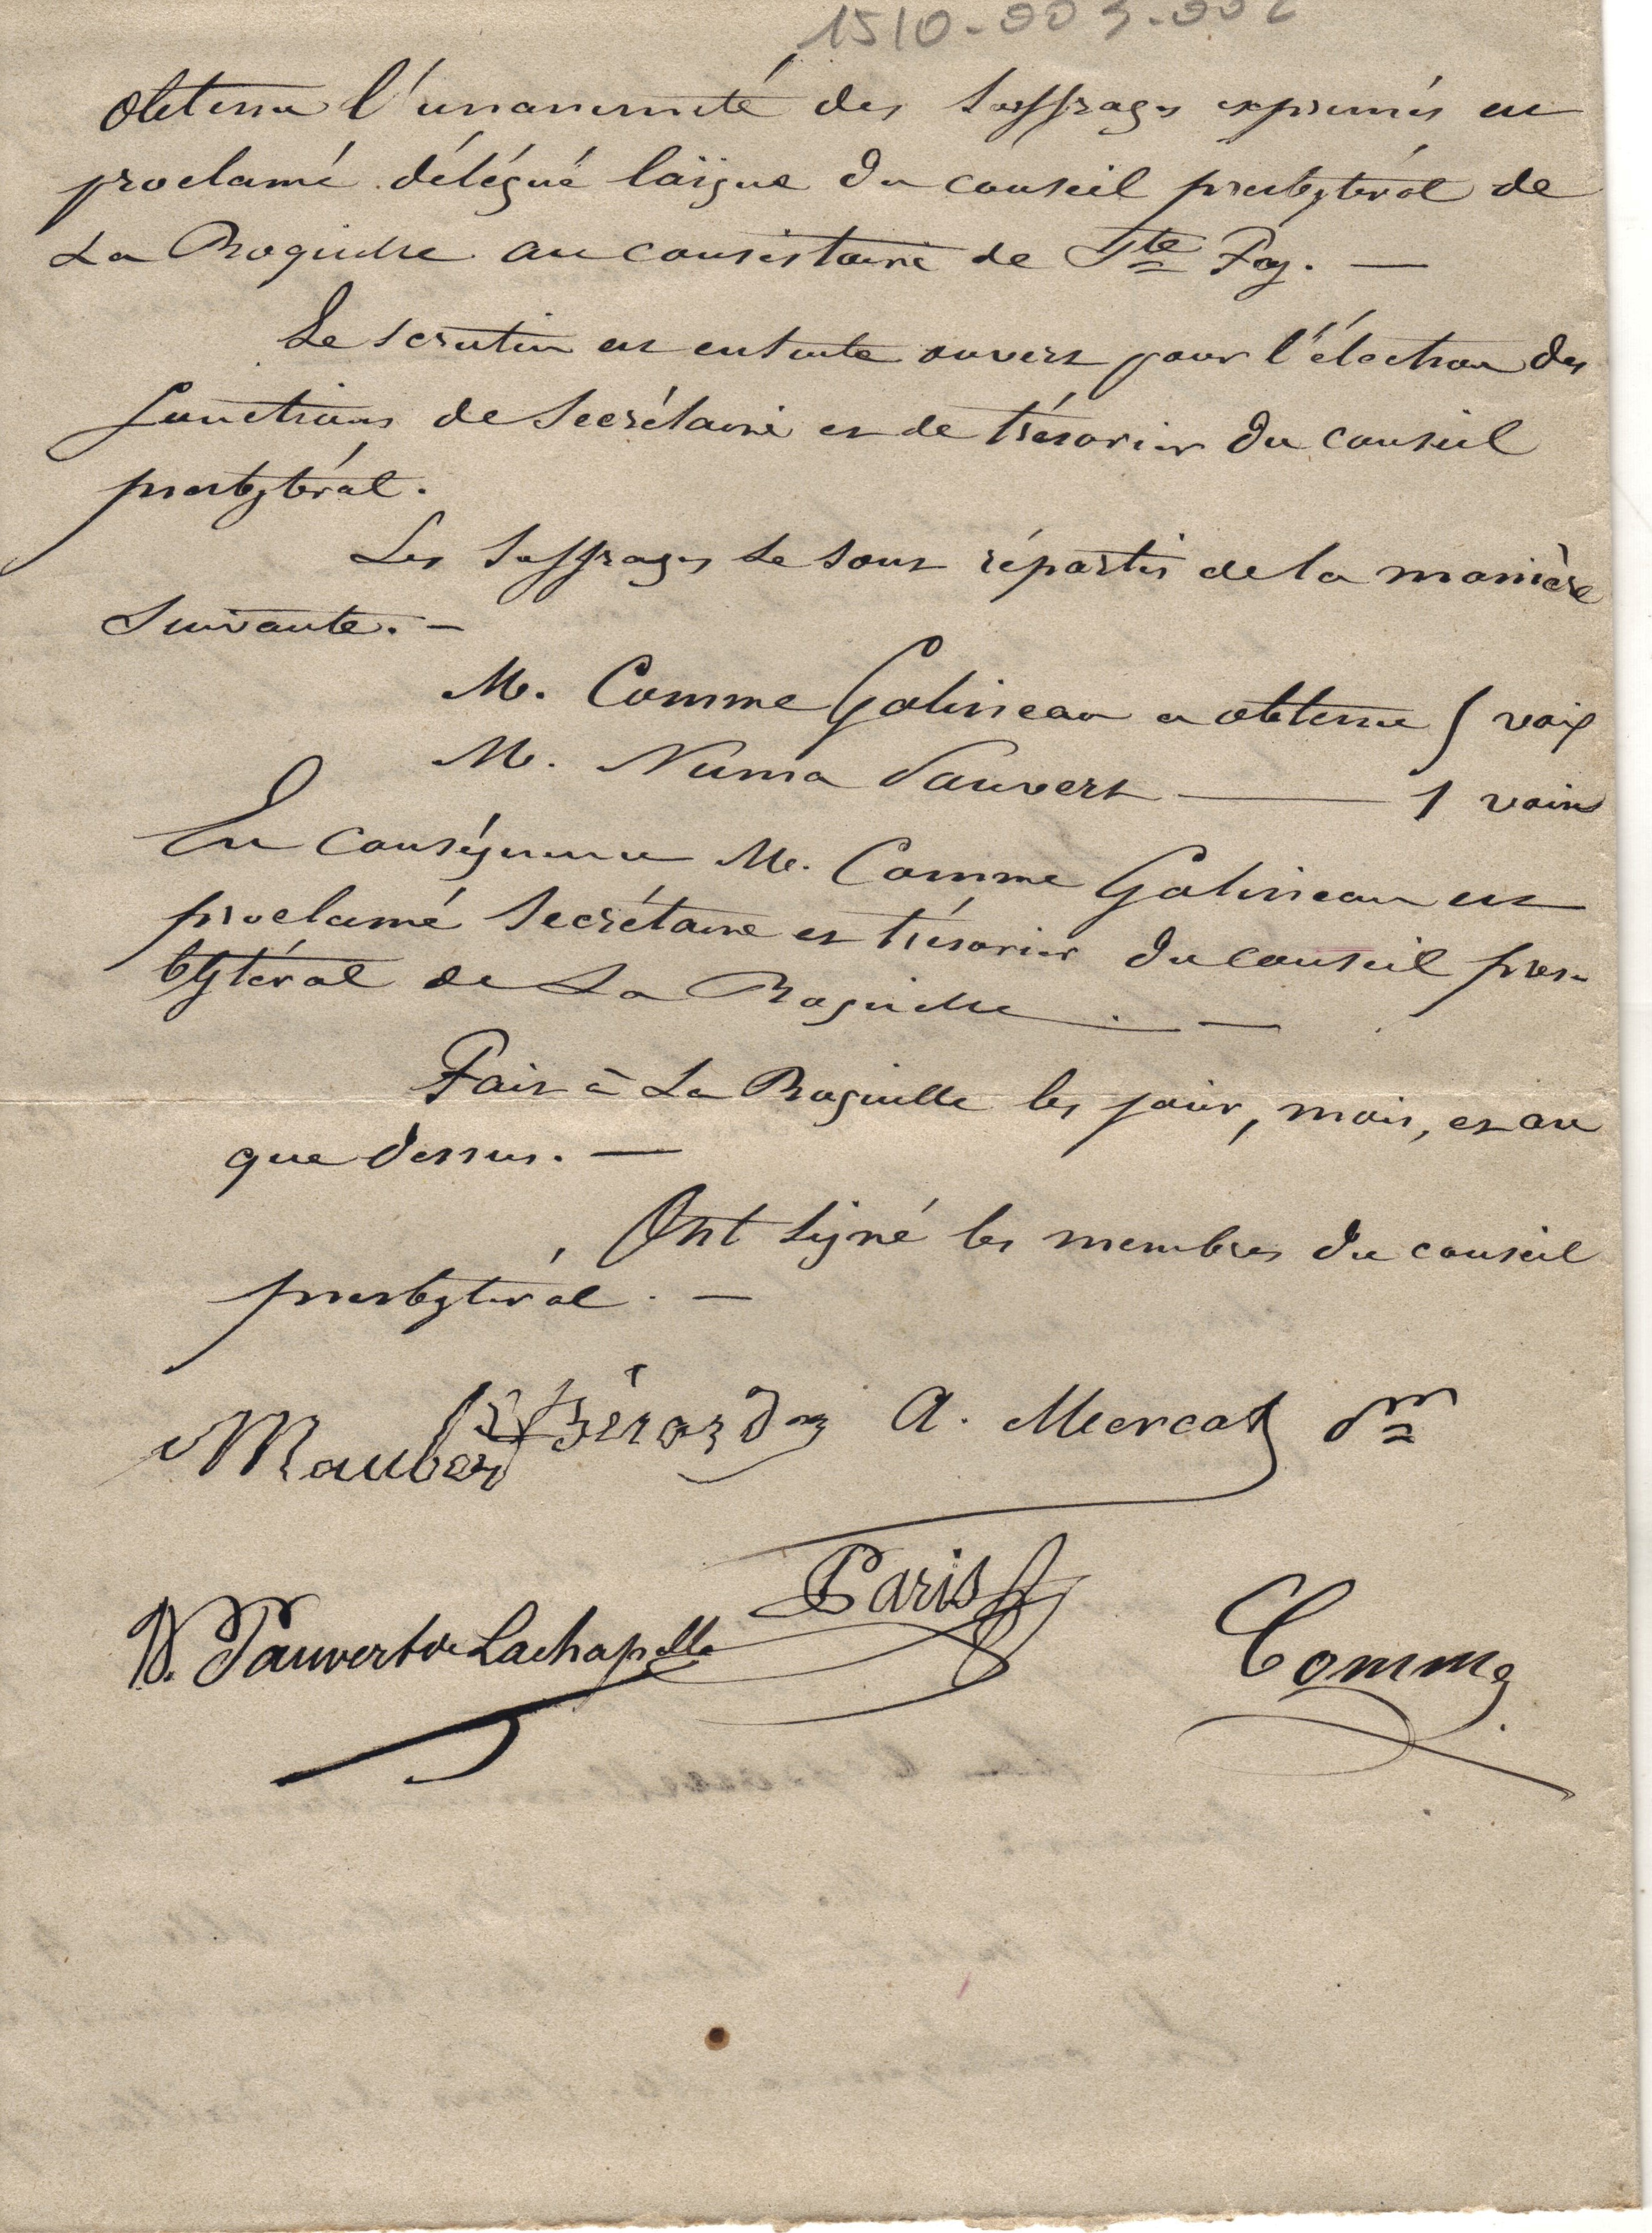 1510-003-002
obtenu l'unanimité des suffrages exprimés est
proclamé délégué laïque du conseil presbytéral de
La Roquille au consistoire de Ste Foy. —
Le scrutin est ensuite ouvert pour l'élection des
fonctions de Secrétaire et de trésorier du conseil
presbytéral.
Les suffrages se sont répartis de la manière
suivante. —
M. Comme Galineau a obtenu 5 voix
M. Numa Jauvert — 1 voix
En conséquence M. Comme Galineau est
proclamé Secrétaire et trésorier du conseil pres-
bytéral de La Roquille. —
Fait à La Roquille les jour, mois, et an
que dessus. —
Ont signé les membres du conseil
presbytéral. —
Maubert Bérard A. Mercat
Paris
N. Jauvert de Lachapelle
Comme